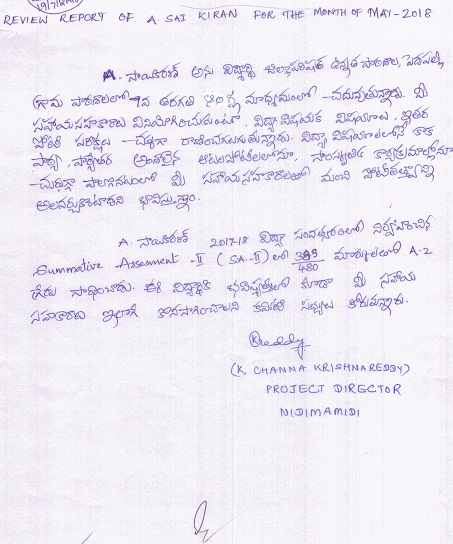 REVIEW REPORT OF A. SAI KIRAN FOR THE MONTH OF MAY-2018
A. సాయికిరణ్ అను విద్యార్థి జిల్లాపరిషత్ ఉన్నత పాఠశాల,
గ్రామ పాఠశాలలో 9వ తరగతి ఆంగ్ల మాధ్యమంలో చదువుతున్నాడు. మీ
సహాయసహకారాలు వినియోగించుకుంటూ, విద్యావిషయక విషయాల, ఇతర
పోటీ పరీక్షలు చక్కగా రాణించగలుగుతున్నాడు. విద్యా విషయాలలోనే కాక
పాఠ్య, పాఠ్యేతర ఆటలపోటీలలోనూ, సాంస్కృతిక కార్యక్రమాల్లోనూ
చురుగ్గా పాల్గొనటంలో మీ సహాయసహకారాలతో మంచి
అలవర్చుకుంటాడని భావిస్తున్నాం.
A. సాయికిరణ్ 2017-18 విద్యా సంవత్సరంలో నిర్వహించిన
Summative Assesment-II (SA-II) లో 389/480 మార్కులతో A-2
గ్రేడు సాధించాడు. ఈ విద్యార్థికి భవిష్యత్తులో కూడా మీ సహాయ
సహకారాలు ఇలాగే కొనసాగించాలని కమిటీ సభ్యులు కోరుతున్నారు.
(K. CHANNA KRISHNAREDDY)
PROJECT DIRECTOR
NIDIMAMIDI